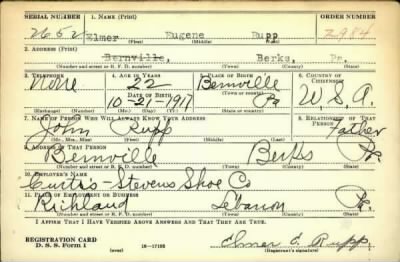 SERIAL NUMBER 1. NAME (Print) ORDER NUMBER
2652 Elmer Eugene Rupp 2984
(First) (Middle) (Last)
2. ADDRESS (Print)
Bernville, Berks, Pa.
(Number and street or R. F. D. number) (Town) (County) (State)
3. TELEPHONE 4. AGE IN YEARS 5. PLACE OF BIRTH 6. COUNTRY OF CITIZENSHIP
None 22 Bernville U.S.A.
DATE OF BIRTH (Town or county)
10-21-1917 Pa
(Exchange) (Number) (Mo.) (Day) (Yr.) (State or country)
7. NAME OF PERSON WHO WILL ALWAYS KNOW YOUR ADDRESS 8. RELATIONSHIP OF THAT PERSON
John Rupp Father
(Mr., Mrs., Miss) (First) (Middle) (Last)
9. ADDRESS OF THAT PERSON
Bernville Berks Pa.
(Number and street or R. F. D. number) (Town) (County) (State)
10. EMPLOYER'S NAME
Curtis-Stevens Shoe Co
11. PLACE OF EMPLOYMENT OR BUSINESS
Richland Lebanon Pa.
(Number and street or R. F. D. number) (Town) (County) (State)
I AFFIRM THAT I HAVE VERIFIED ABOVE ANSWERS AND THAT THEY ARE TRUE.
REGISTRATION CARD
D. S. S. Form 1 (over) 16-17105 Elmer E. Rupp
(Registrant's signature)